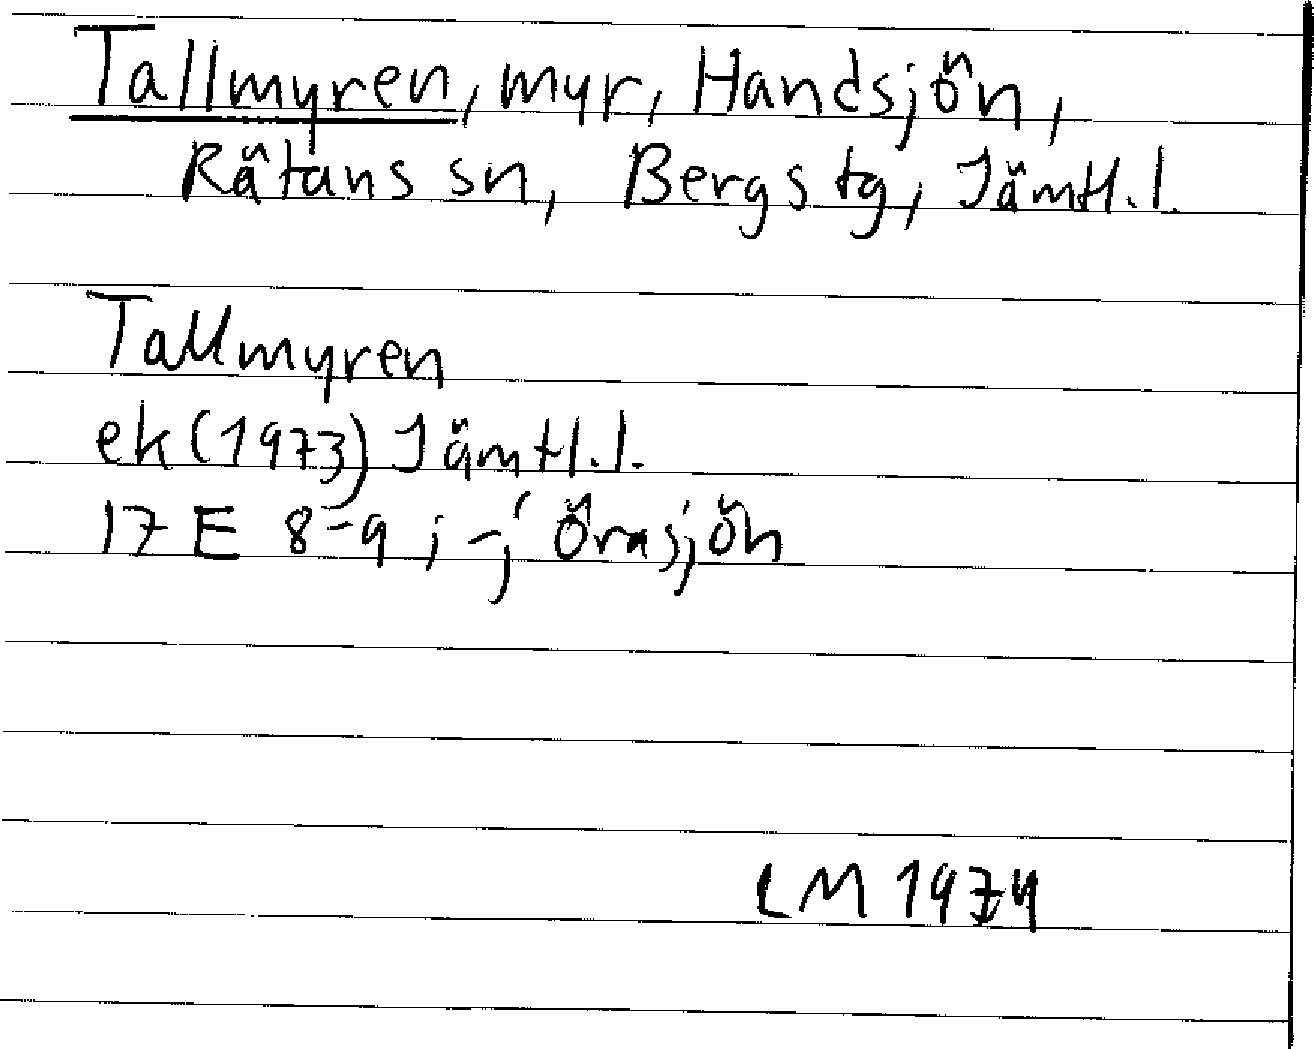 Tallmyren, myr, Handsjön,
Rätans sn, Bergs tg, Jämtl. l.
Tallmyren
ek (1973) Jämtl. l.
17 E 8-9 i-j Örasjön
LM 1974